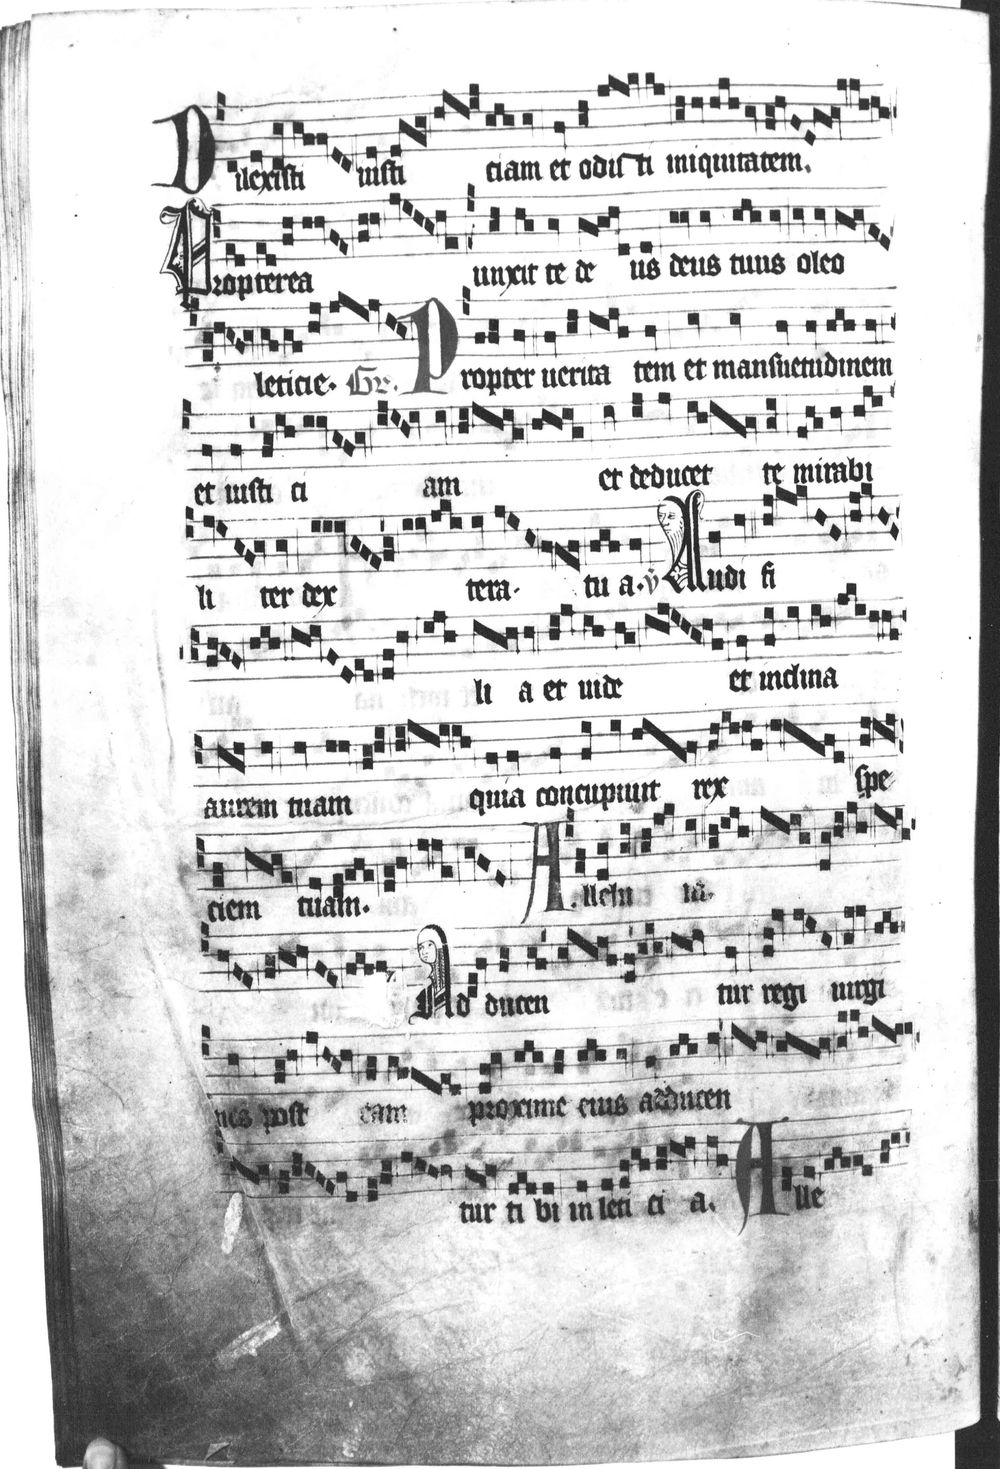 Dilexisti iusti ciam et odis ti iniquitatem.
Propterea unxit te de us deus tuus oleo
leticie. Gr. Propter uerita tem et mansuetudinem
et iusti ci am et deducet te mirabi
li ter dex tera. tu a. v Audi fi
li a et uide et inclina
aurem tuam quia concupiuit rex spe
ciem tuam. Alleluu ia.
Ad ducen tur regi uirgi
nes post eam proxime eius adducen
tur ti bi in leti ci a. Alle